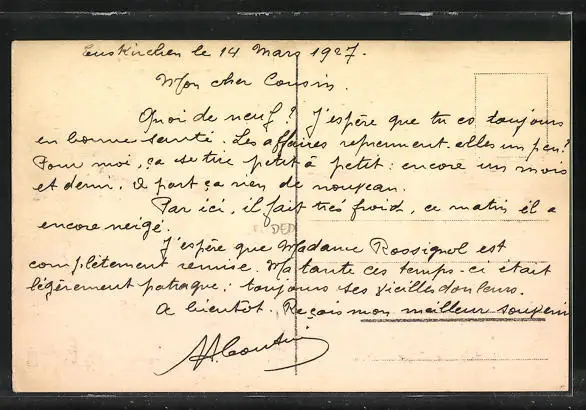 Euskirchen le 14 Mars 1927.
Mon cher Cousin.
Quoi de neuf ? J'espère que tu es toujours
en bonne santé. Les affaires reprennent elles un peu?
Pour moi, ça se tire petit à petit : encore un mois
et demi. à part ça rien de nouveau.
Par ici, il fait très froid, ce matin il a
encore neigé.
J'espère que Madame Rossignol est
complètement remise. Ma tante ces temps-ci était
légèrement patraque : toujours ses vieilles douleurs.
A bientôt. Reçois mon meilleur souvenir